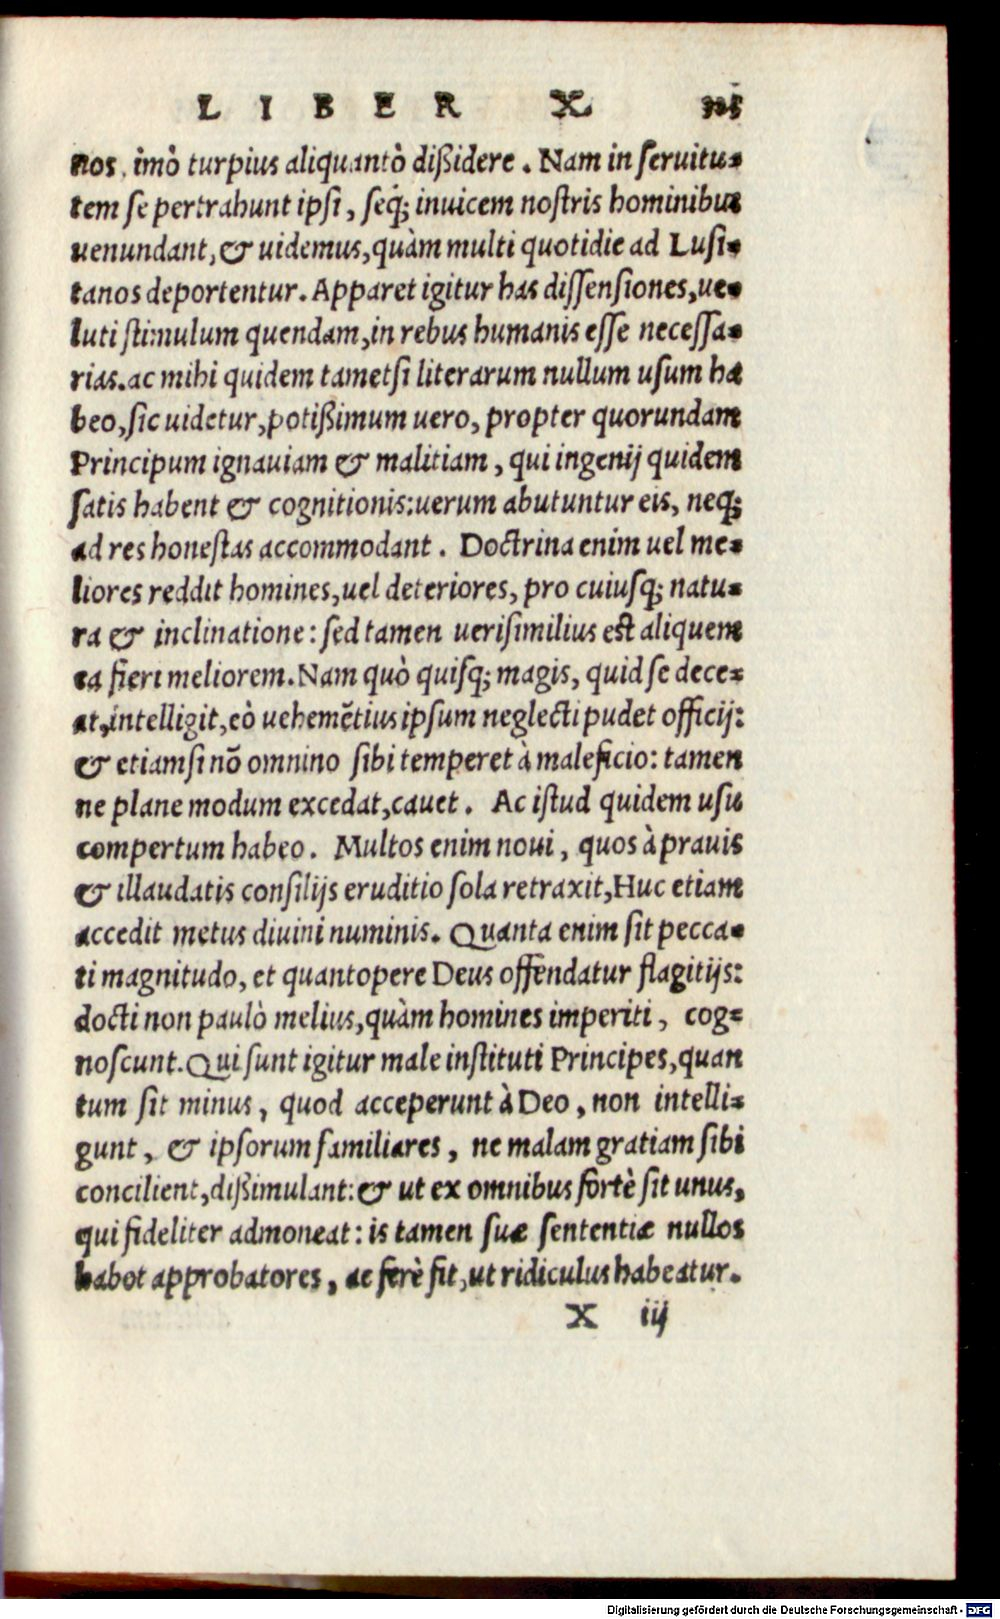 LIBER X.
nos, imò turpius aliquantò dißidere. Nam in ſeruitu-
tem ſe pertrahunt ipſi, ſeq; inuicem noſtris hominibus
uenundant, & uidemus, quàm multi quotidie ad Luſi-
tanos deportentur. Apparet igitur has diſſenſiones, ue-
luti ſtimulum quendam, in rebus humanis eſſe neceſſa-
rias. ac mihi quidem tametſi literarum nullum uſum ha
beo, ſic uidetur, potißimum uero, propter quorundam
Principum ignauiam & malitiam, qui ingenij quidem
ſatis habent & cognitionis: uerum abutuntur eis, neq;
ad res honeſtas accommodant. Doctrina enim uel me-
liores reddit homines, uel deteriores, pro cuiuſq; natu-
ra & inclinatione: ſed tamen ueriſimilius eſt aliquem
ea fieri meliorem. Nam quò quiſq; magis, quid ſe dece-
at, intelligit, eò uehemētius ipſum neglecti pudet officij:
& etiamſi nō omnino ſibi temperet à maleficio: tamen
ne plane modum excedat, cauet. Ac iſtud quidem uſu
compertum habeo. Multos enim noui, quos à prauis
& illaudatis conſilijs eruditio ſola retraxit, Huc etiam
accedit metus diuini numinis. Quanta enim ſit pecca-
ti magnitudo, et quantopere Deus offendatur flagitijs:
docti non paulò melius, quàm homines imperiti, cog-
noſcunt. Qui ſunt igitur male inſtituti Principes, quan
tum ſit minus, quod acceperunt à Deo, non intelli-
gunt, & ipſorum familiares, ne malam gratiam ſibi
concilient, dißimulant: & ut ex omnibus fortè ſit unus,
qui fideliter admoneat: is tamen ſuæ ſententiæ nullos
habet approbatores, ac ferè fit, ut ridiculus habeatur.
X iij
Digitalisierung gefördert durch die Deutsche Forschungsgemeinschaft - DFG